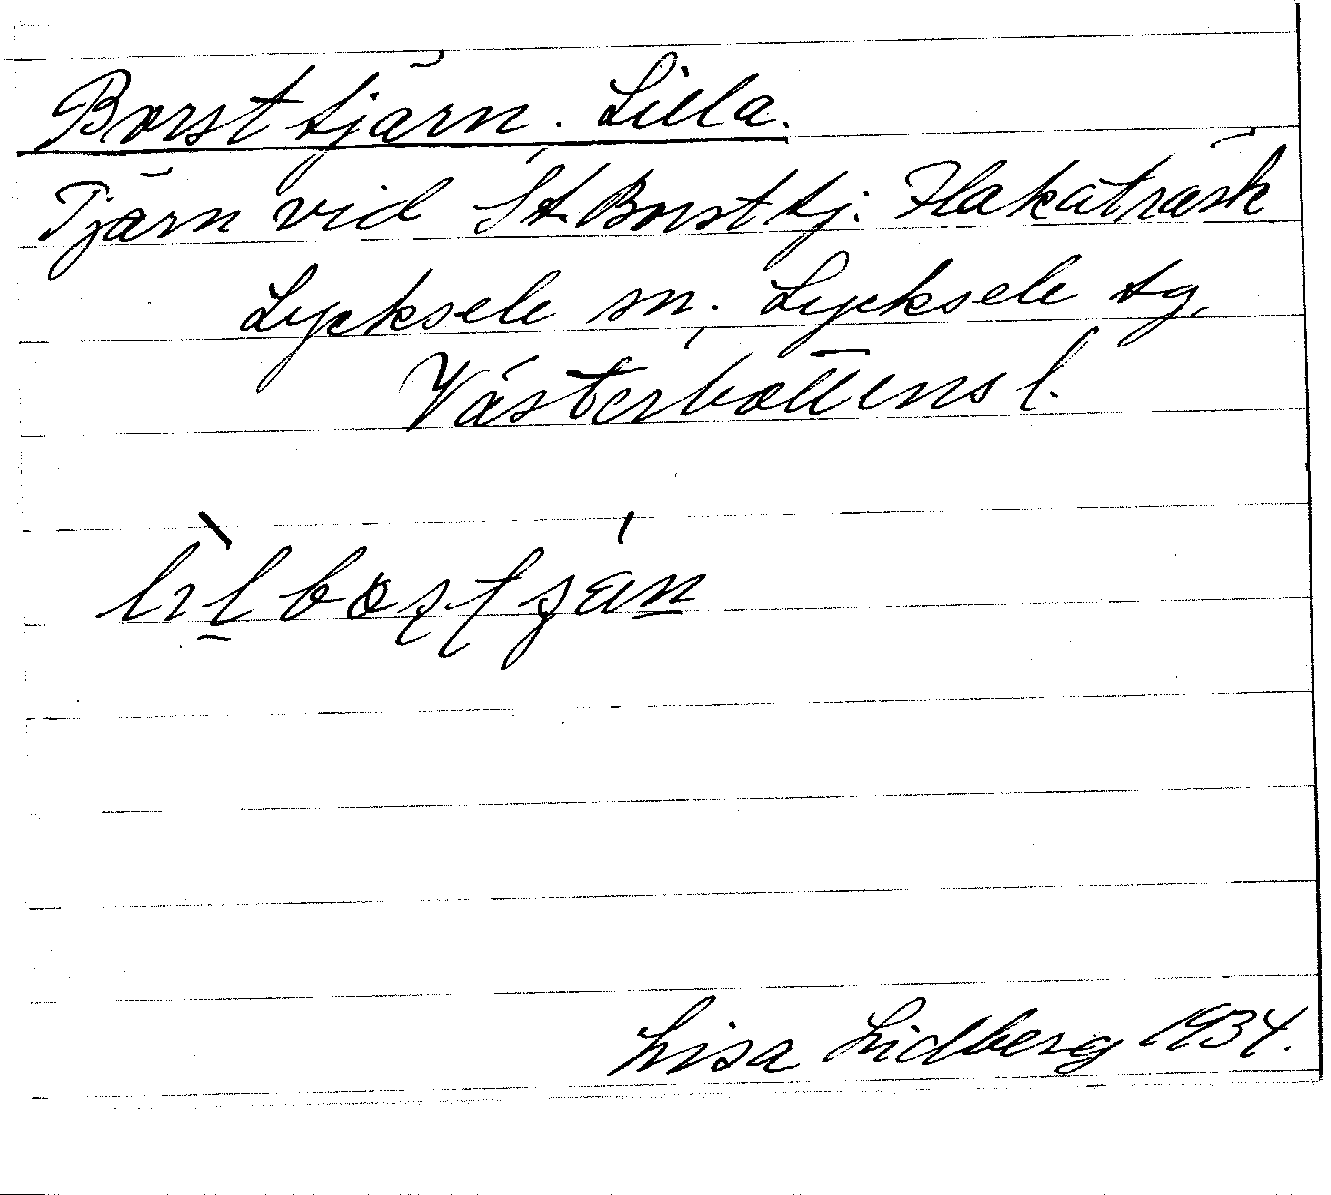 Borsttjärn. Lilla.
Tjärn vid St. Borsttj. Hakaträsk
Lycksele sn. Lycksele tg.
Västerbottens l.
Lisa Lidberg 1934.